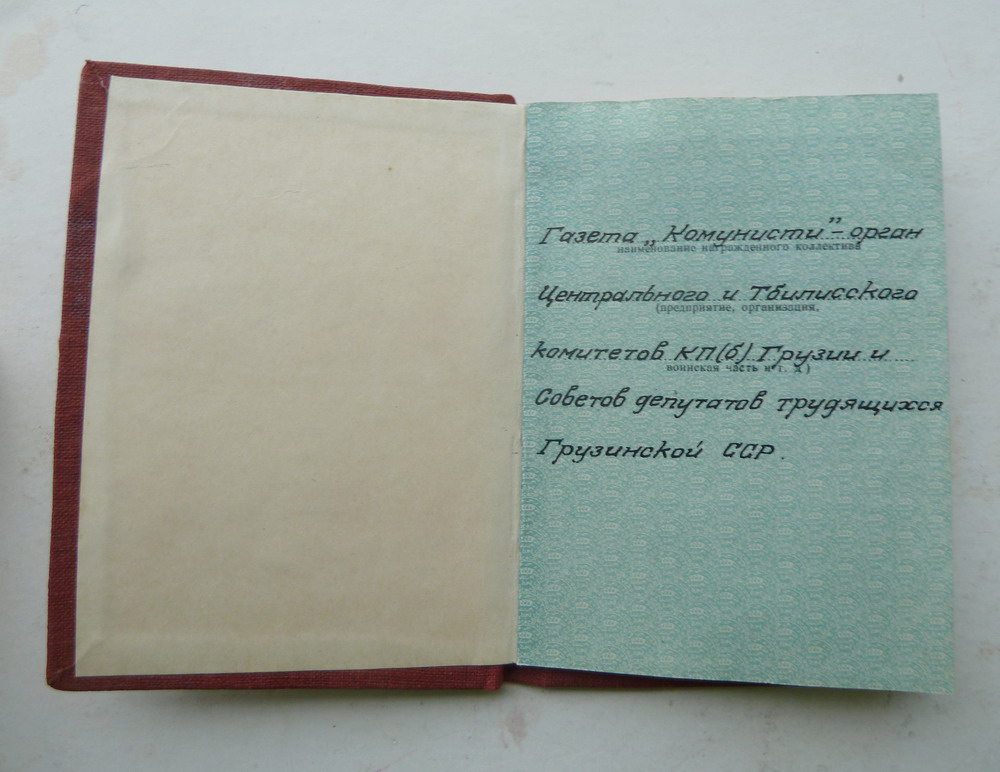 Газета „Комунисти” – орган
наименование награжденного коллектива
Центрального и Тбилисского
(предприятие, организация,
комитетов КП(б) Грузии и
воинская часть и т. д.)
Советов депутатов трудящихся
Грузинской ССР.